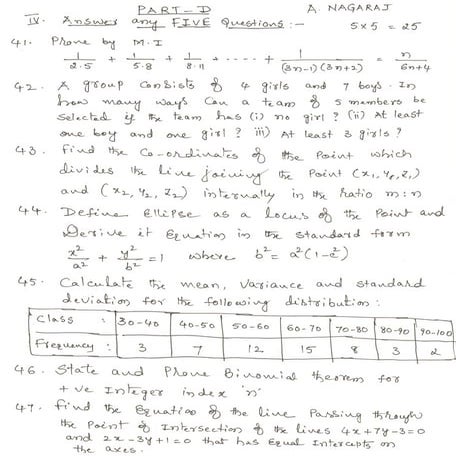 PART-D A. NAGARAJ
IV. Answer any FIVE Questions :- 5×5 = 25
41. Prove by M.I
1/2.5 + 1/5.8 + 1/8.11 + ---- + 1/(3n-1)(3n+2) = n/6n+4
42. A group consists of 4 girls and 7 boys. In
how many ways can a team of 5 members be
selected if the team has (i) no girl ? (ii) At least
one boy and one girl ? iii) At least 3 girls ?
43. Find the Co-ordinates of the Point which
divides the line joining the Point (x₁, y₁, z₁)
and (x₂, y₂, z₂) internally in the ratio m:n
44. Define Ellipse as a locus of the Point and
Derive it Equation in the standard form
x²/a² + y²/b² = 1 where b² = a²(1-e²)
45. Calculate the mean, Variance and standard
deviation for the following distribution :
Class : 30-40 40-50 50-60 60-70 70-80 80-90 90-100
Frequency : 3 7 12 15 8 3 2
46. State and Prove Binomial theorem for
+ve Integer index 'n'
47. Find the Equation of the line Passing through
the Point of Intersection of the lines 4x+7y-3=0
and 2x-3y+1=0 that has Equal Intercepts on
the axes.